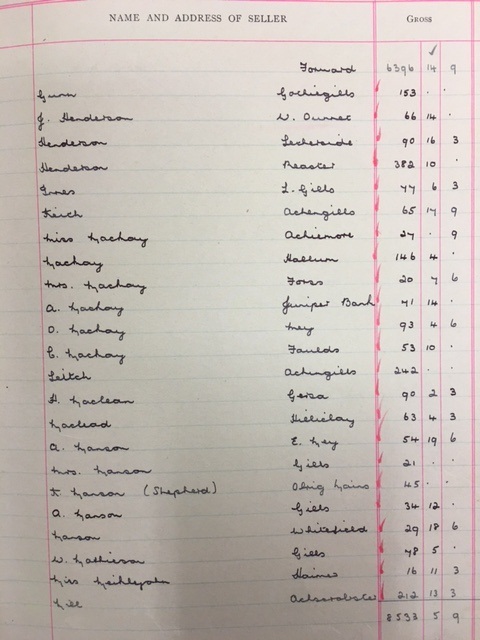 NAME AND ADDRESS OF SELLER GROSS
✓
Forward 6396 14 9
Gunn Gothiegills 153 . .
J. Henderson W. Dunnet 66 14 .
Henderson Lecherside 90 16 3
Henderson Reaster 382 10 .
Innes L. Gills 77 6 3
Keith Achingills 65 17 9
Miss Mackay Achiemore 27 . 9
Mackay Hallum 146 4 .
Mrs. Mackay Forss 20 7 6
A. Mackay Juniper Bank 71 14 .
D. Mackay Mey 93 4 6
C. Mackay Faulds 53 10 .
Leitch Achingills 242 . .
H. Maclean Gersa 90 2 3
Macleod Hilliclay 63 4 3
A. Manson E. Mey 54 19 6
Mrs. Manson Gills 21 . .
K. Manson (Shepherd) Olrig Mains 45 . .
A. Manson Gills 34 12 .
Manson Whitefield 29 18 6
W. Mathieson Gills 78 5 .
Miss Meiklejohn Haimer 16 11 3
Mill Achscrabster 212 13 3
8533 5 9